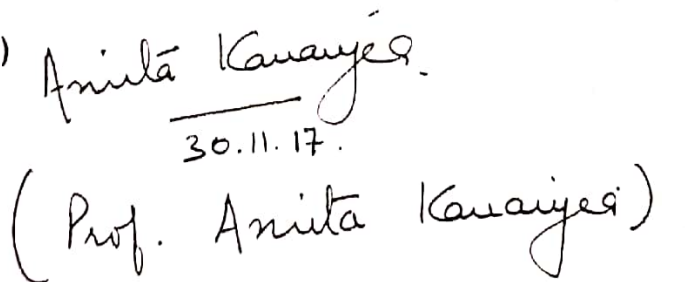 ) Anita Kanaujia.
30.11.17.
(Prof. Anita Kanaujia)